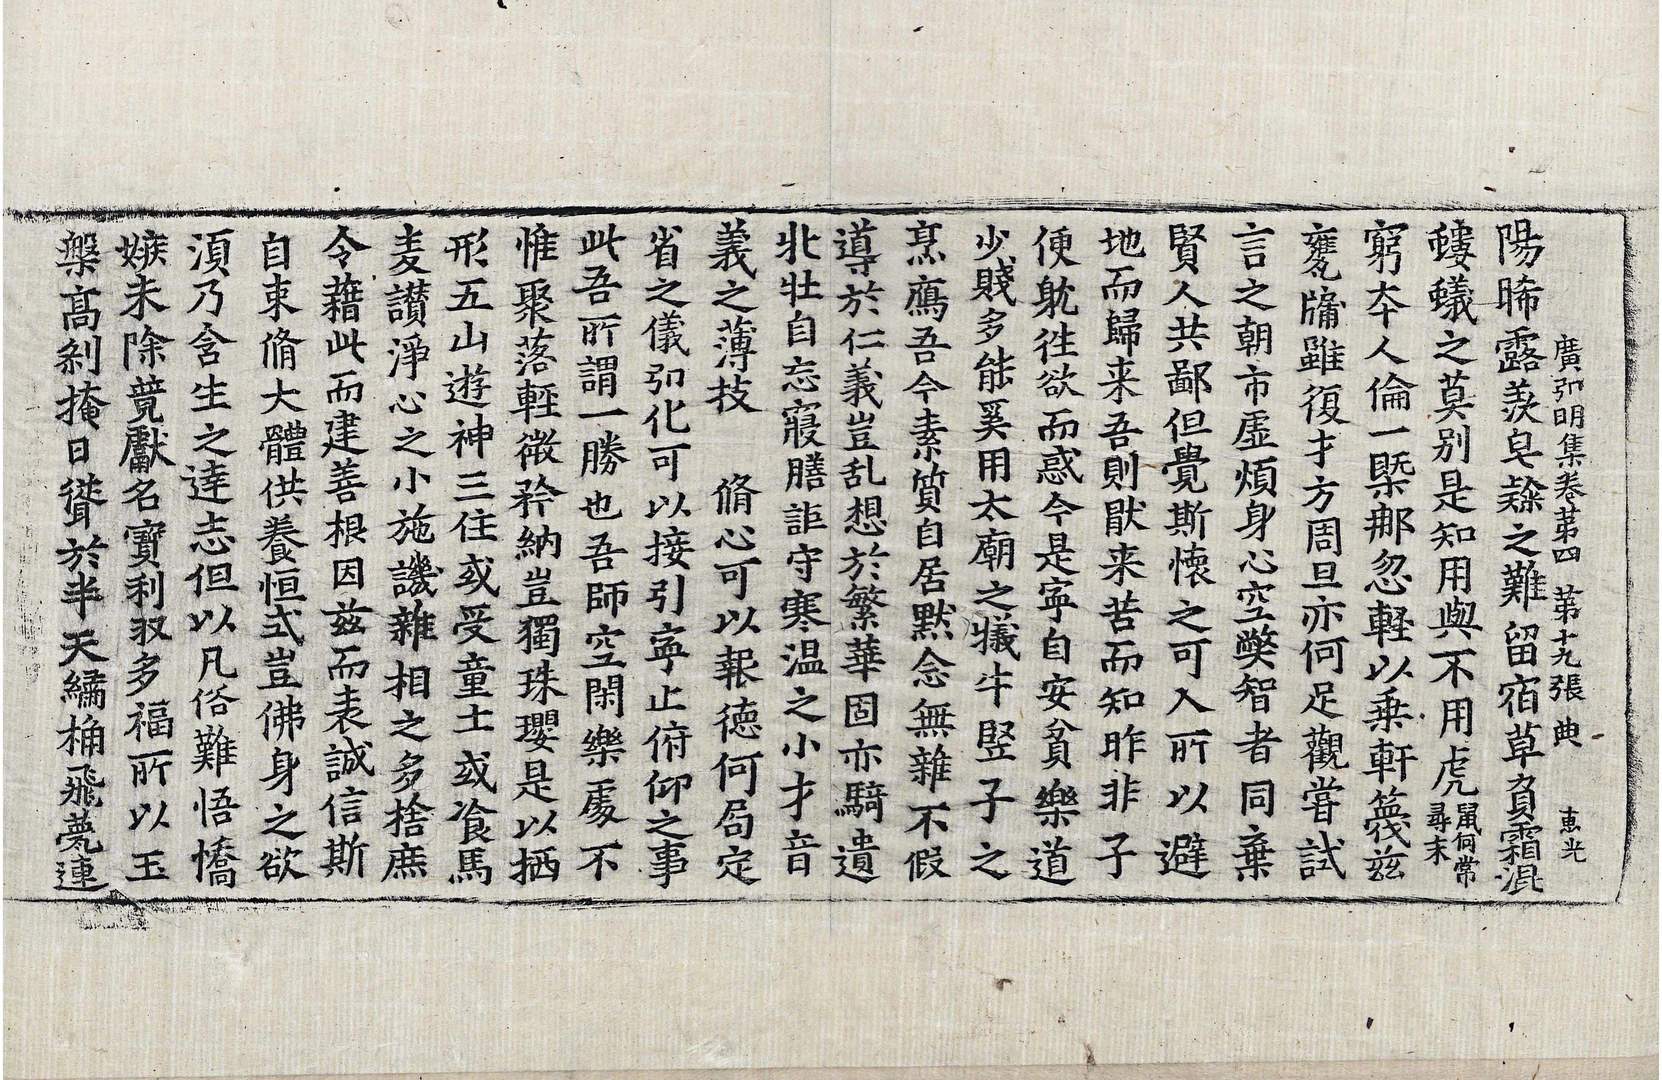 廣弘明集卷第四　第十九張　典　惠光
陽晞露羨皂蕣之難留宿草負霜混
螻蟻之莫別是知用與不用虎鼠何常尋末
窮夲人倫一槩那忽輕以乗軒篾兹
甕牖雖復才方周旦亦何足觀甞試
言之朝市虛煩身心空弊智者同棄
賢人共鄙但覺斯懷之可入所以避
地而歸来吾則猒来苦而知昨非子
便躭徃欲而惑今是寜自安貧樂道
少賤多能奚用太廟之犧牛竪子之
烹鴈吾今素質自居默念無雜不假
導於仁義豈乱想於繁華固亦騎遺
北壮自忘寢膳詎守寒温之小才音
義之薄技　脩心可以報德何局定
省之儀弘化可以接引寜止俯仰之事
此吾所謂一勝也吾師空閑樂處不
惟聚落輊微矜納豈獨珠瓔是以栖
形五山遊神三住或受童土或飡馬
麦讃淨心之小施譏雜相之多捨庶
令藉此而建善根因兹而表誠信斯
自束脩大體供養恒式豈佛身之欲
湏乃含生之達志但以凡俗難悟憍
嫉未除競獻名寳利収多福所以玉
槃髙刹掩日聳於半天繡桷飛甍連